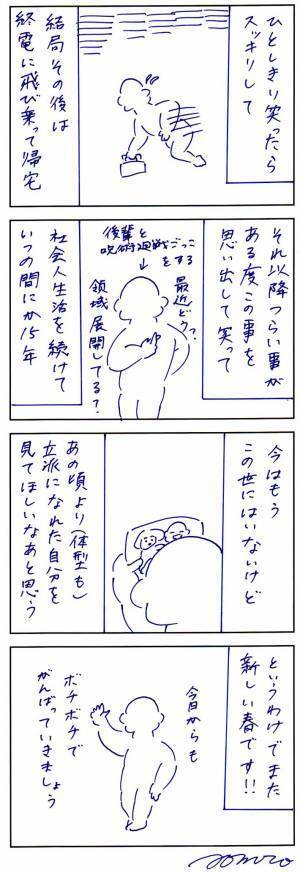 ひとしきり笑ったら
スッキリして
結局その後は
終電に飛び乗って帰宅
それ以降つらい事が
ある度この事を
思い出して笑って
後輩と
呪術廻戦ごっこ
をする
最近どう?
領域展開してる?
社会人生活を続けて
いつの間にか15年
今はもう
この世にはいないけど
あの頃より(体型も)
立派になれた自分を
見てほしいなあと思う
というわけでまた
新しい春です!!
今日からも
ボチボチで
がんばっていきましょう